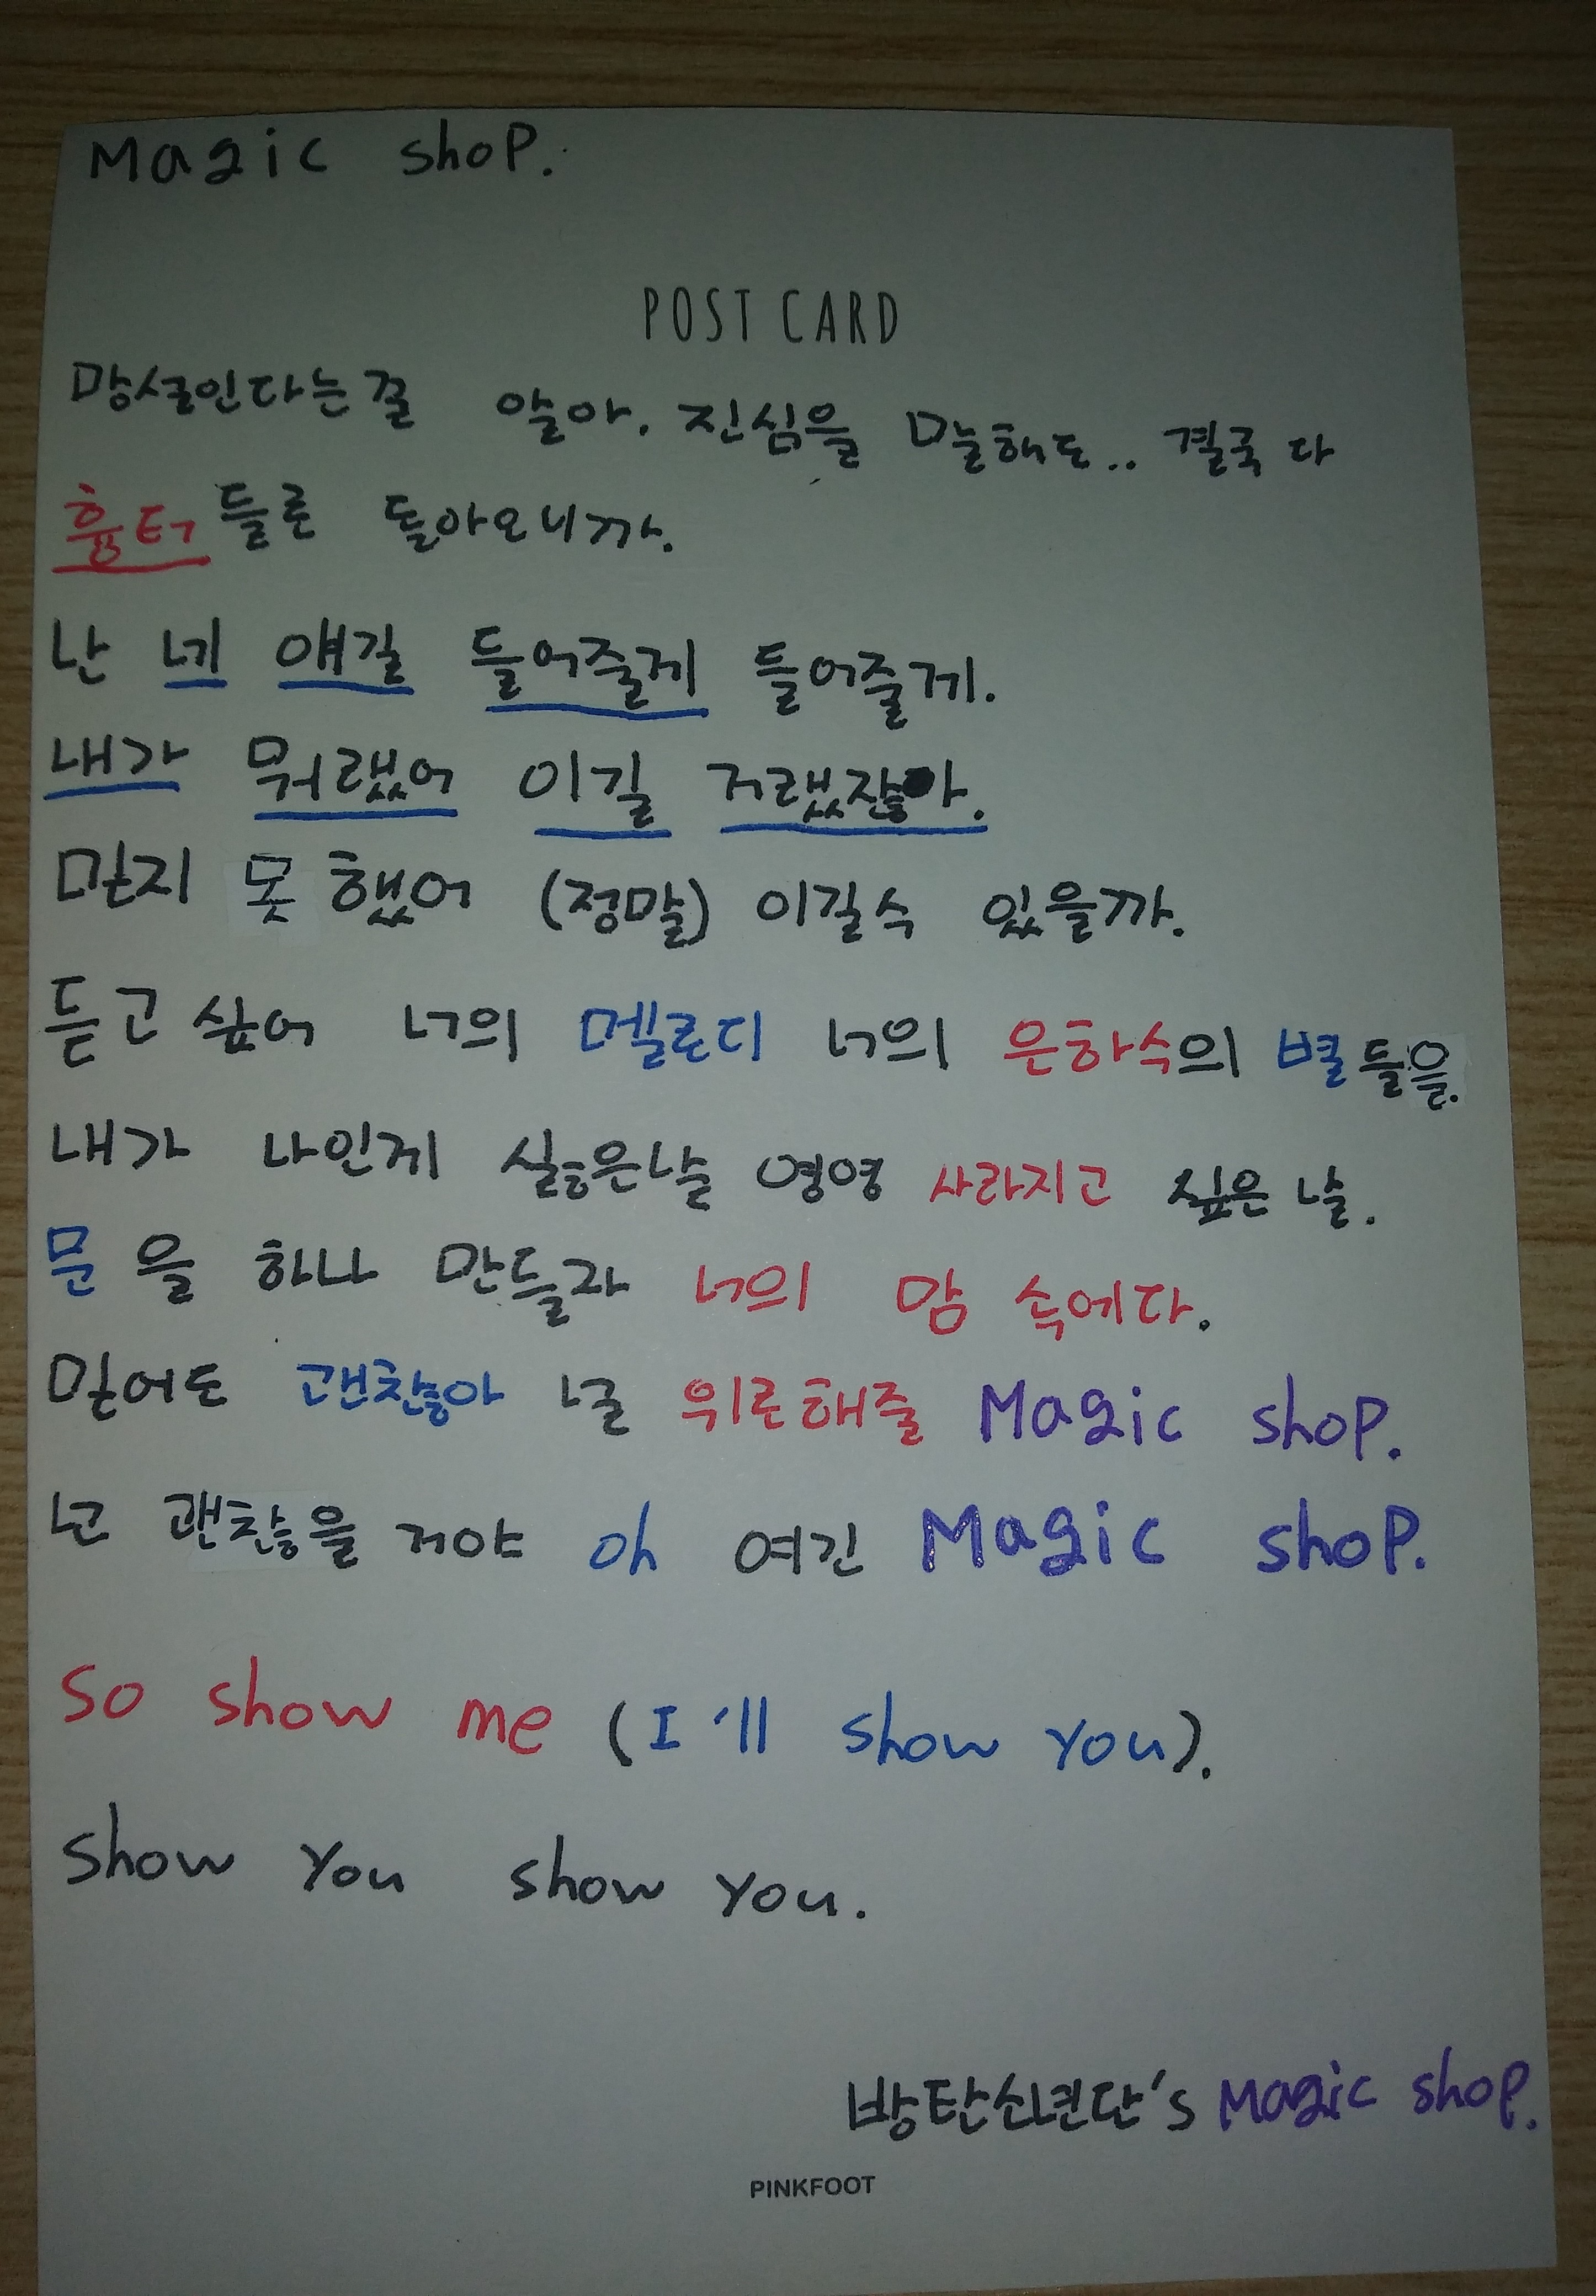 Magic shop.
POST CARD
망설인다는 걸 알아. 진심을 말해도.. 결국 다
흉터 들로 돌아오니까.
난 네 얘길 들어줄게 들어줄게.
내가 뭐랬어 이길 거랬잖아.
믿지 못 했어 (정말) 이길수 있을까.
듣고 싶어 너의 멜로디 너의 은하수의 별들을.
내가 나인게 싫은날 영영 사라지고 싶은 날.
문 을 하나 만들자 너의 맘 속에다.
믿어도 괜찮아 널 위로해줄 Magic shop.
넌 괜찮을 거야 oh 여긴 Magic shop.
so show me (I'll show you).
show you show you.
방탄소년단's Magic shop.
PINKFOOT